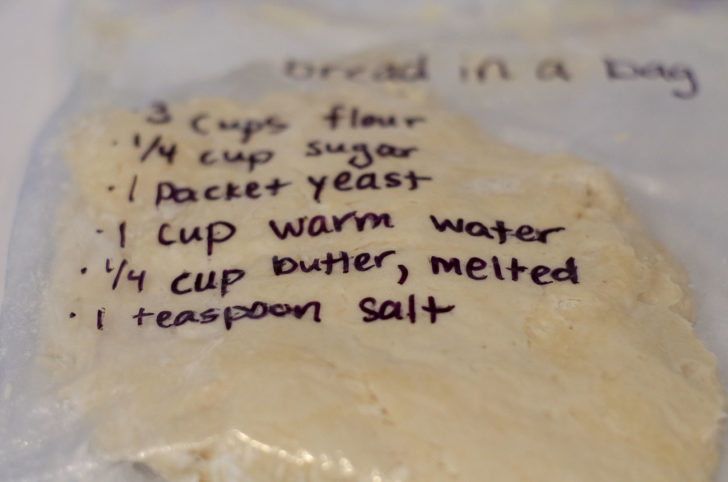 bread in a bag
· 3 cups flour
· 1/4 cup sugar
· 1 packet yeast
· 1 cup warm water
· 1/4 cup butter, melted
· 1 teaspoon salt